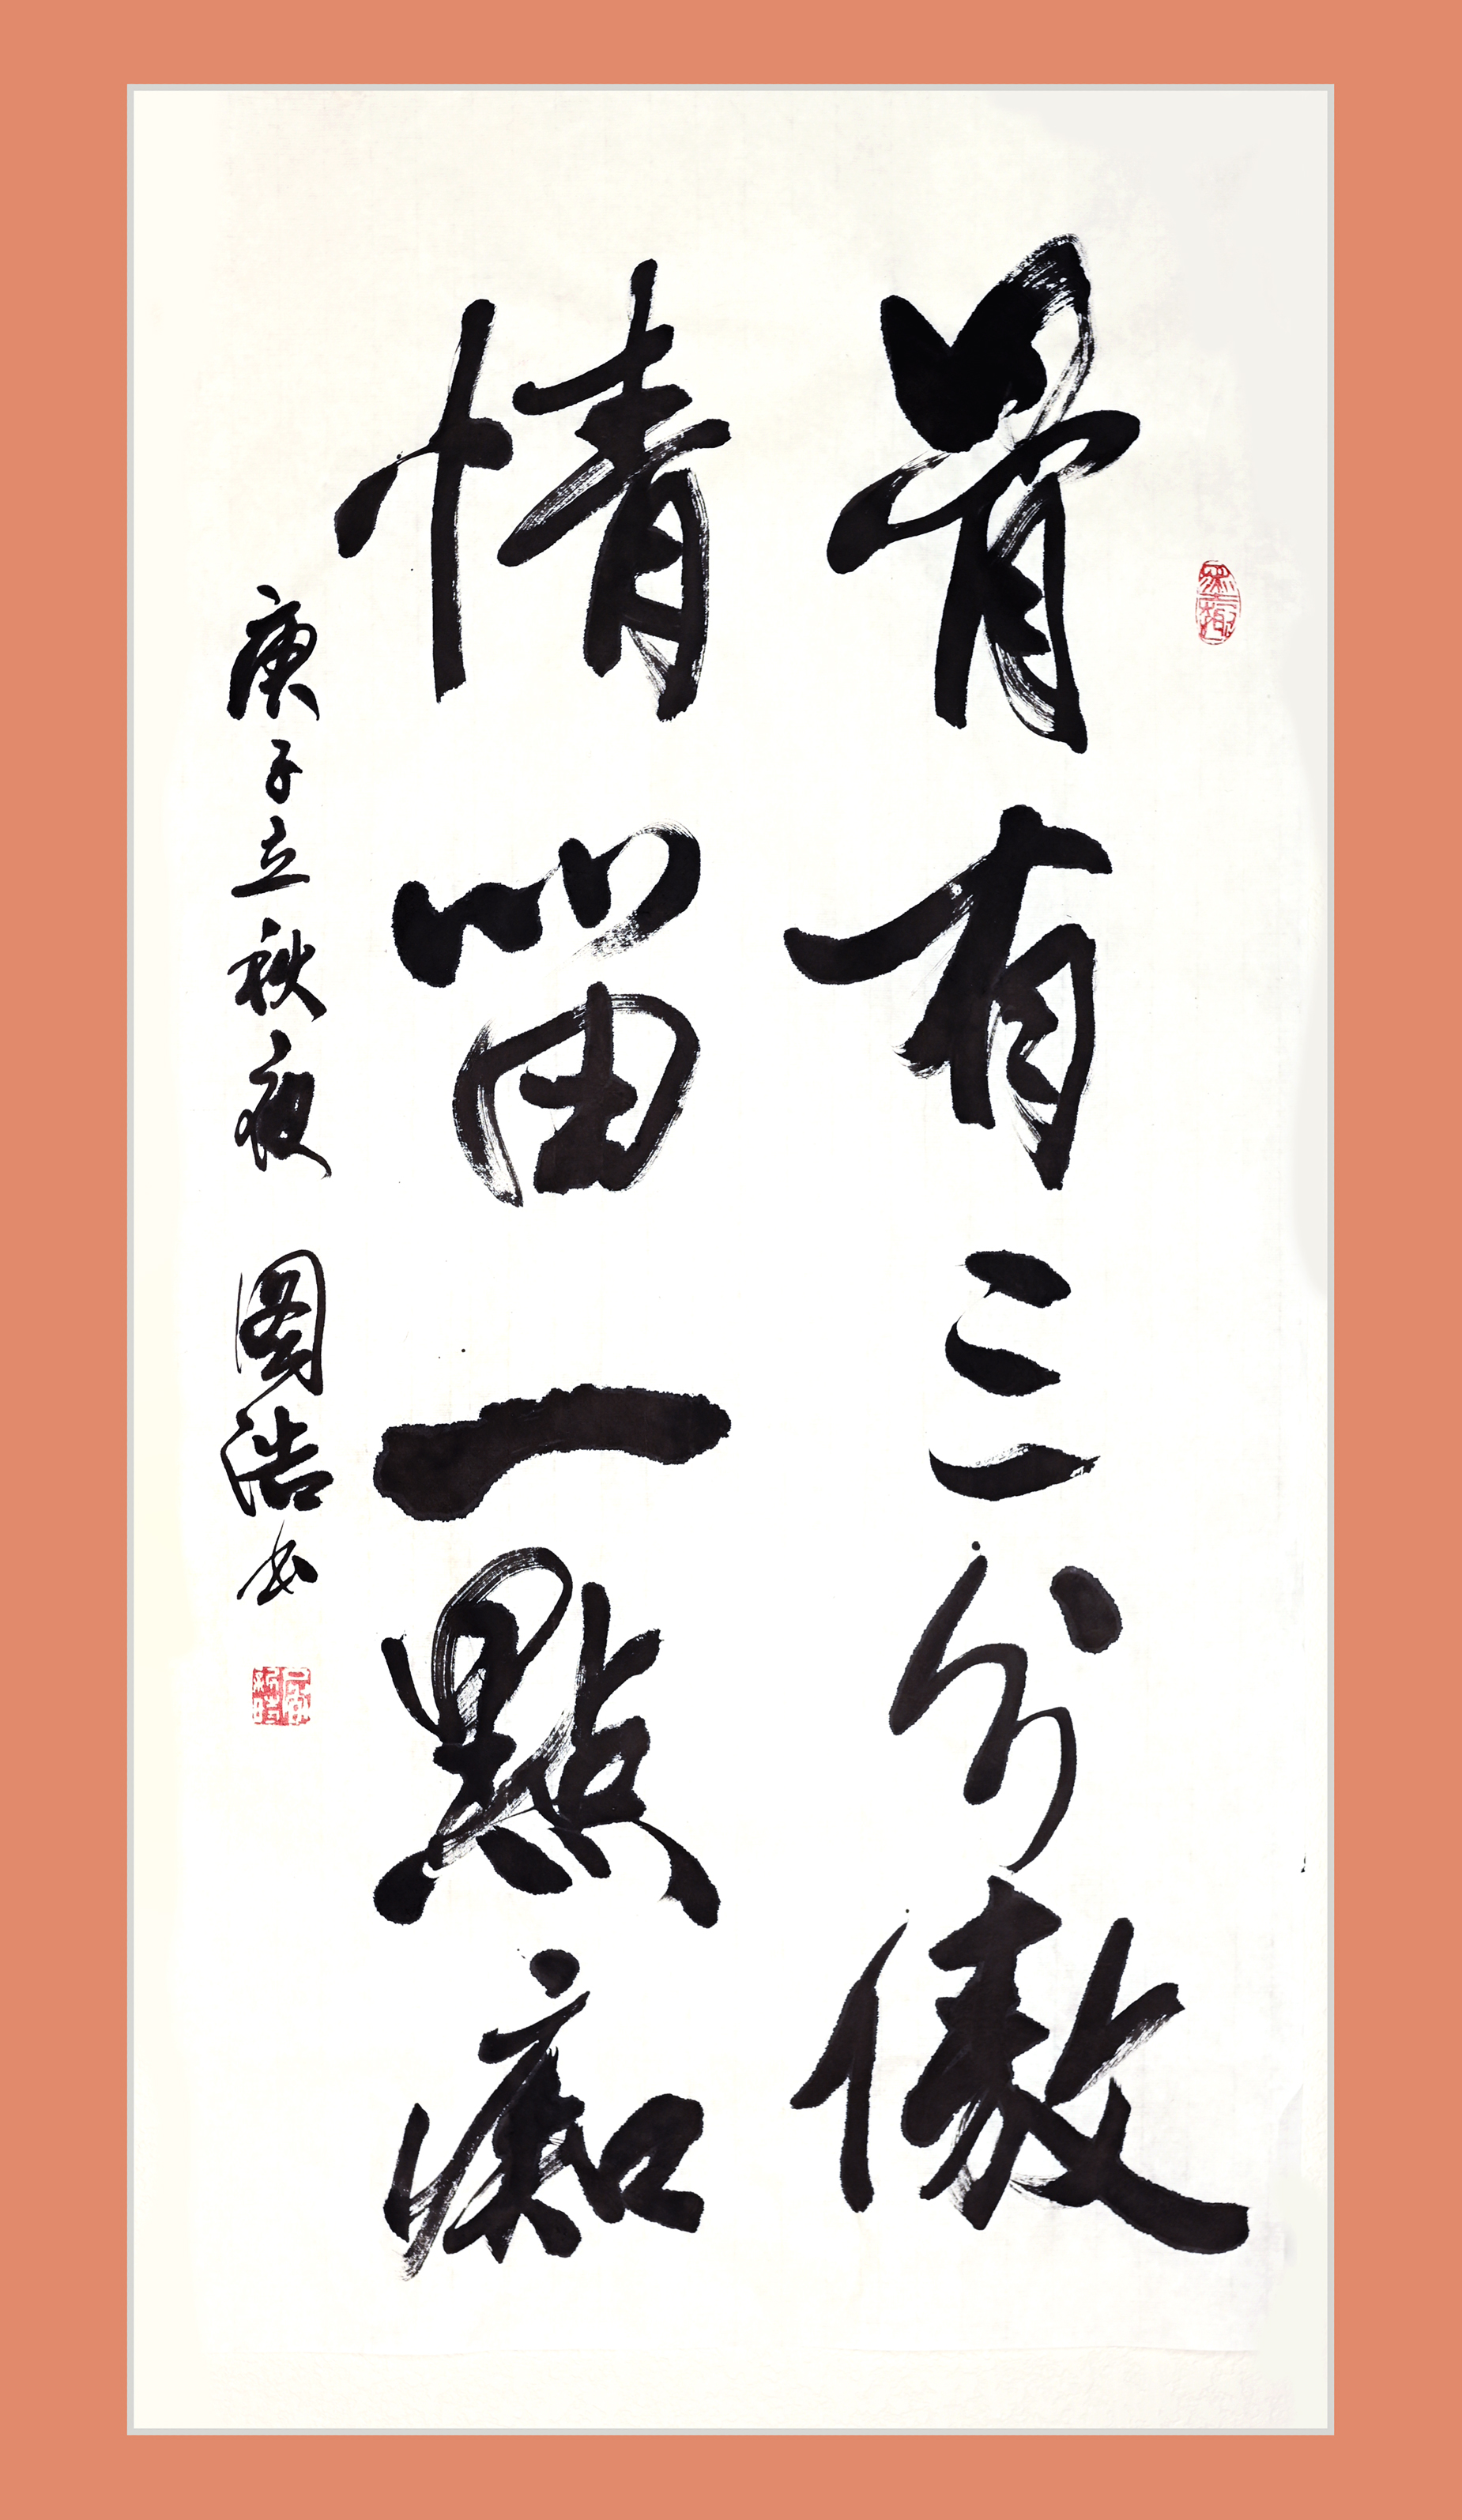 骨有三分傲
情留一點痴
庚子立秋夜 國浩书